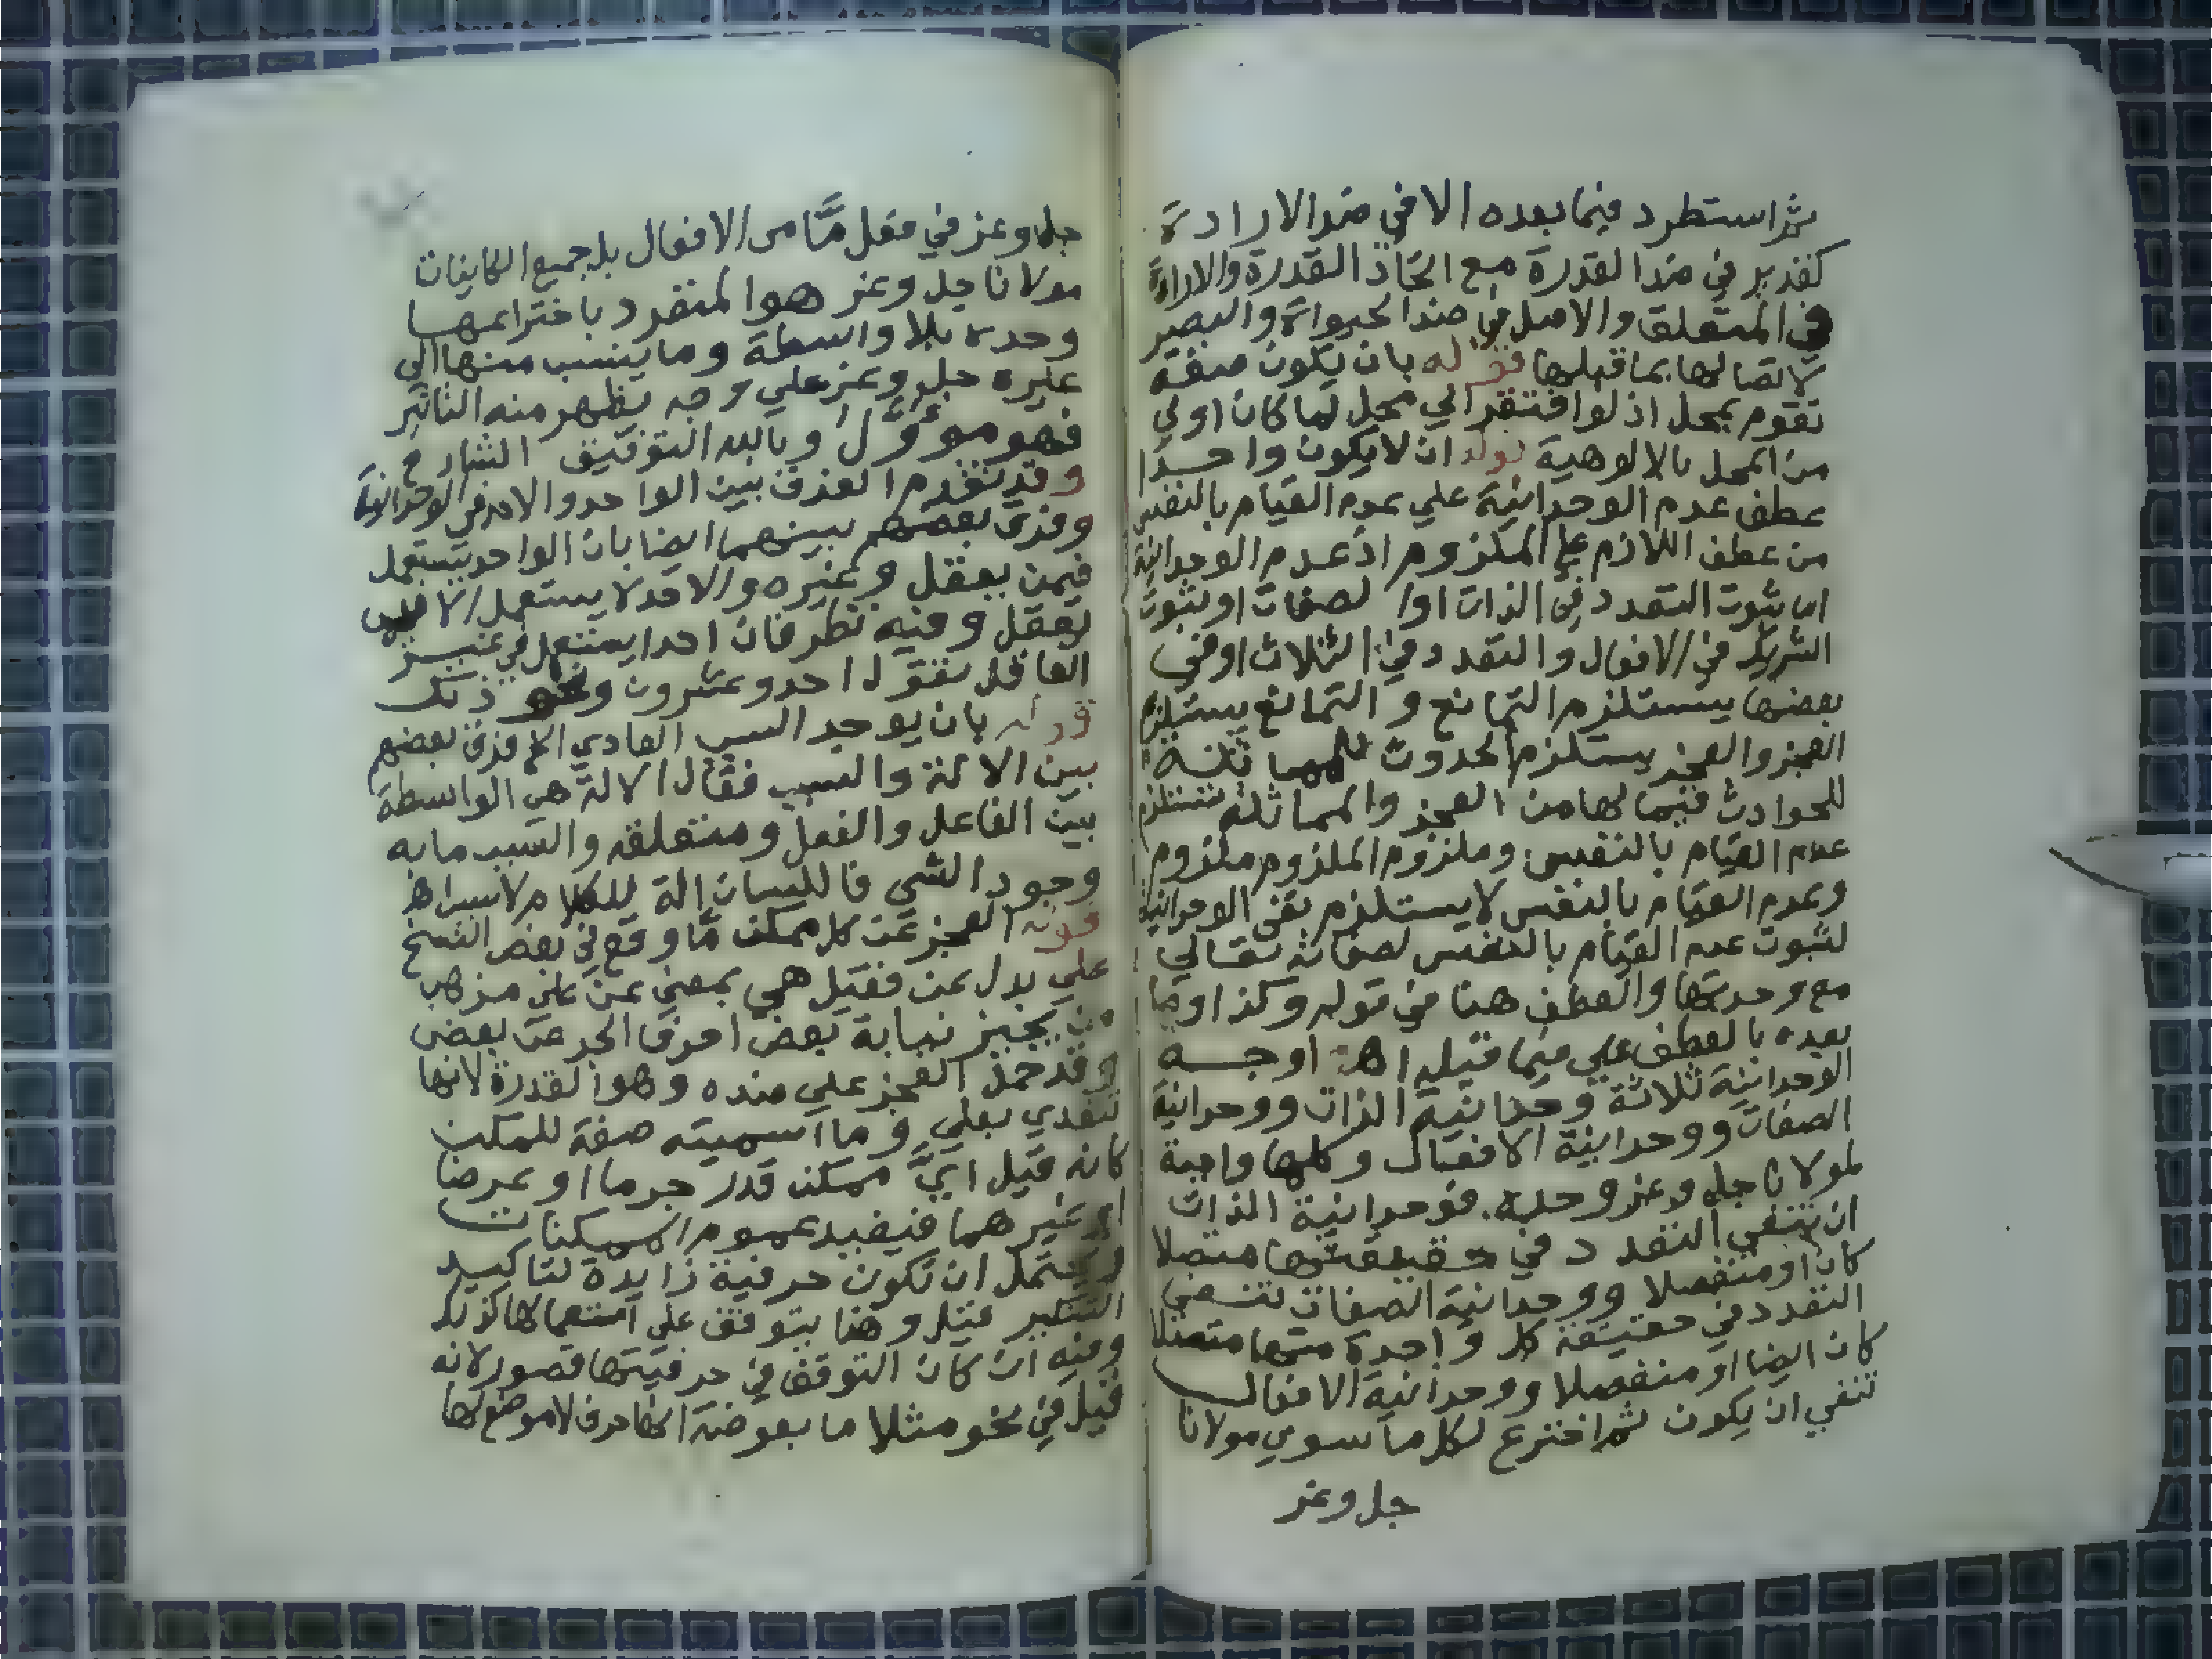 ثم استطرد فيما بعده الا في ضد الارادة
في ضد القدرة مع اتحاد القدرة والارادة
في المتعلق والاصل في ضد الحيواة والبصر
لاتصالها بما قبلها قوله بان يكون صفة
تقوم بمحل اذ لو افتقر الي محل لما كان اولي
من المحل بالالوهية قوله ان لا يكون واحدا
عطف عدم الوحدانية علي عدم القيام بالنفس
من عطف اللازم علي الملزوم اذ عدم الوحدانية
اما ثبوت التعدد في الذات او الصفات او ثبوت
الشريك في الافعال والتعدد في الثلاث او في
بعضها يستلزم التمانع والتمانع يستلزم
العجز والعجز يستلزم الحدوث للمماثلة
للحوادث فيما لها من العجز والمماثلة تستلزم
عدم القيام بالنفس وملزوم الملزوم ملزوم
وعدم القيام بالنفس لا يستلزم نفي الوحدانية
لثبوت عدم القيام بالنفس لصفاته تعالي
مع وحدتها والعطف هنا في قوله وكذا وما
بعده بالعطف علي فيما قبله اهـ اوجه
الوحدانية ثلاثة وحدانية الذات ووحدانية
الصفات ووحدانية الافعال وكلها واجبة
لمولانا جل وعز وحده فوحدانية الذات
ان تنفي التعدد في حقيقتها متصلا
كان او منفصلا ووحدانية الصفات تنفي
التعدد في حقيقة كل واحدة منها متصلا
كان ايضا او منفصلا ووحدانية الافعال
تنفي ان يكون ثم اختراع لكل ما سوي مولانا
جل وعز
جل وعز في فعل مّا من الافعال بل جميع الكاينات
مولانا جل وعز هو المنفرد باختراعها
وحده بلا واسطة وما ينسب منها الي
غيره جل وعز علي وجه يظهر منه التاثير
فهو موؤل وبالله التوفيق الشارح
وقد تقدم الفرق بين الواحد والاحد في الوحدانية
وفرق بعضهم بينهما ايضا بان الواحد يستعمل
فيمن يعقل وغيره والاحد لا يستعمل الا فيمن
يعقل وفيه نظر فان احدا يستعمل في غير
العاقل تقول احد وعشرون ونحو ذلك
قوله بان يوجد السبب العادي الخ فرق بعضهم
بين الالة والسبب فقال الالة هي الواسطة
بين الفاعل والفعل ومتعلقه والسبب ما به
وجود الشي فاللسان الة للكلام لا سبب اهـ
قوله العجز عن كل ممكن مّا وقع في بعض النسخ
علي بدل عن فقيل هي بمعني عن علي مذهب
من يجيز نيابة بعض احرف الجر عن بعض
وقد حمل العجز علي ضده وهو القدرة لانها
تتعدي بعلي وما اسمية صفة للمكن
كانه قيل ايّ ممكن قدر جرما او عرضا
او غيرهما فيفيد عموم الممكنات
ويحتمل ان تكون حرفية زايدة لتاكيد
التنكير قيل وهذا يتوقف علي استعمالها كذلك
وفيه ان كان التوقف في حرفيتها قصور لانه
قيل في نحو مثلا ما بعوضة انها حرف لا موضع لها